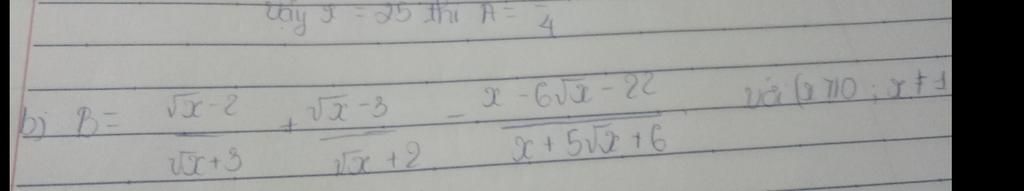 Vậy x = 25 thì A = /4
b) B = (√x - 2)/(√x + 3) + (√x - 3)/(√x + 2) - (x - 6√x - 22)/(x + 5√x + 6) với (x ≥ 0 ; x ≠ 1